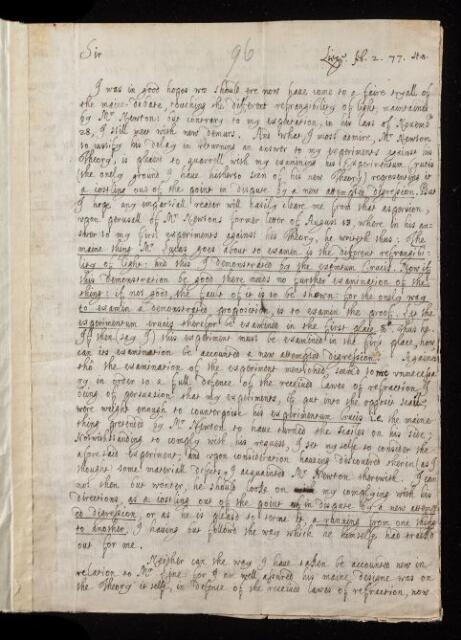 Sir
96
Feb. 2. 77.
I was in good hopes we should ere now have come to a faire tryall of
the maine debate, touching the different refrangibility of light, maintained
by Mr Newton: but contrary to my expectation, in his last of Novemb.
28, I still meet with new demurs. And what I most admire, Mr Newton
to justify his delay in returning an answer to my experiments against his
Theory, is pleas'd to quarrell with my examining his Experimentum Crucis
(the onely ground I have hitherto seen of his new Theory) representing it
a costing out of the point in dispute by a new attempted digression. But
I hope any impartial reader will easily cleare me from that aspersion,
upon perusall of Mr Newtons former letter of August 18, where in his an-
swer to my first experiments against his Theory, he writeth thus: The
maine thing Mr Lucas goes about to examin is the different refrangibi-
lity of light: And this I demonstrated by the experimentum Crucis. Now if
this demonstration be good there needs no further examination of the
thing: if not good the fault of it is to be shown: for the onely way
to examin a demonstrated proposition, is to examin the proof. Let the
experimentum crucis therefore be examined in the first place &c. Thus he.
If then (say I) this experiment must be examined in the first place, how
can its examination be accounted a new attempted digression? Againe
tho the examination of the experiment mentioned seem'd to me unnecessa-
ry, in order to a full defence of the received laws of refraction, I
being of persuasion that my experiments, if put into the opposit scale,
were weight enough to counterpoise his experimentum Crucis i.e. the maine
thing pretended by Mr Newton to have turned the scales on his side;
Notwithstanding to comply with his request, I set my selfe to consider the
aforesaid experiment; and upon consideration having discovered therein (as I
thought) some material defects, I acquainted Mr Newton therewith. I can
not then but wonder, he should look on my complying with his
directions, as a costing out of the point in dispute by a new attempt
ed digression, or as he is pleased to terme it, a running from one thing
to another. I having but followed the way which he himself had traced
out for me.
Neither can the way I have taken be accounted new in
relation to Mr Line: for I am well assured his maine designe was on
the Theory it self, in defence of the received laws of refraction, now